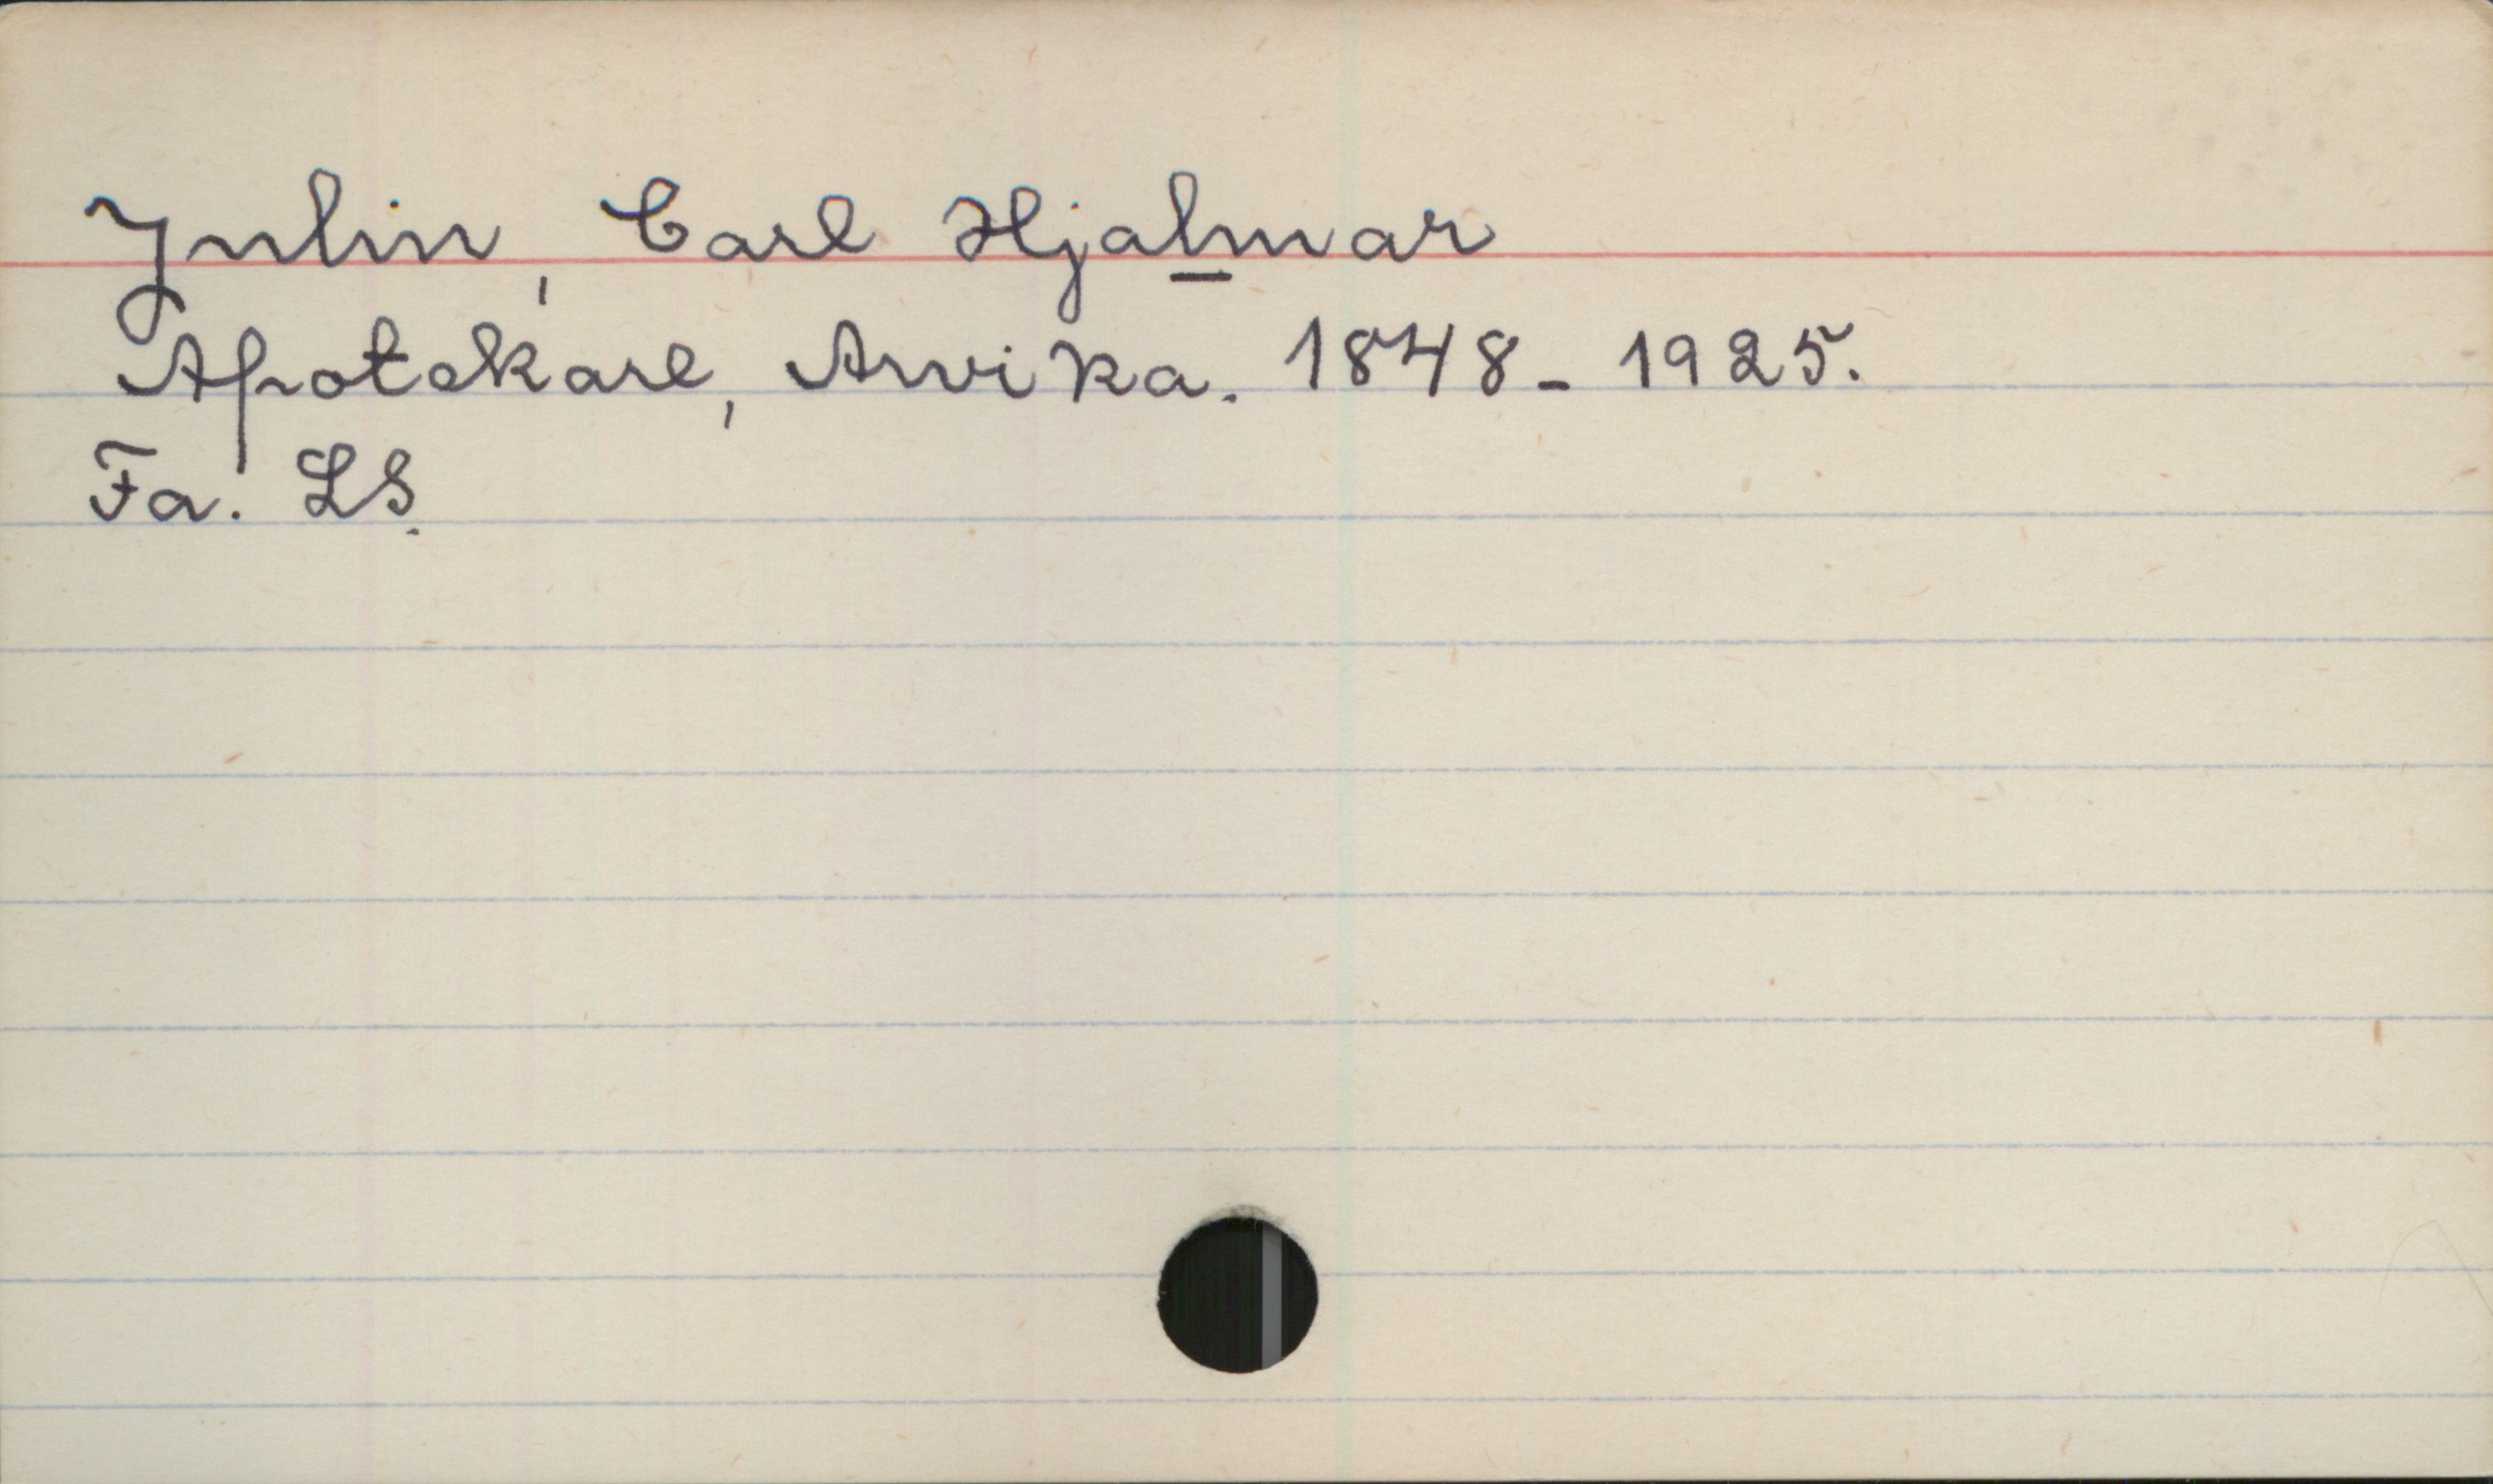 Julin, Carl Hjalmar
Apotekare, Arvika. 1848-1925.
Fa. LS.